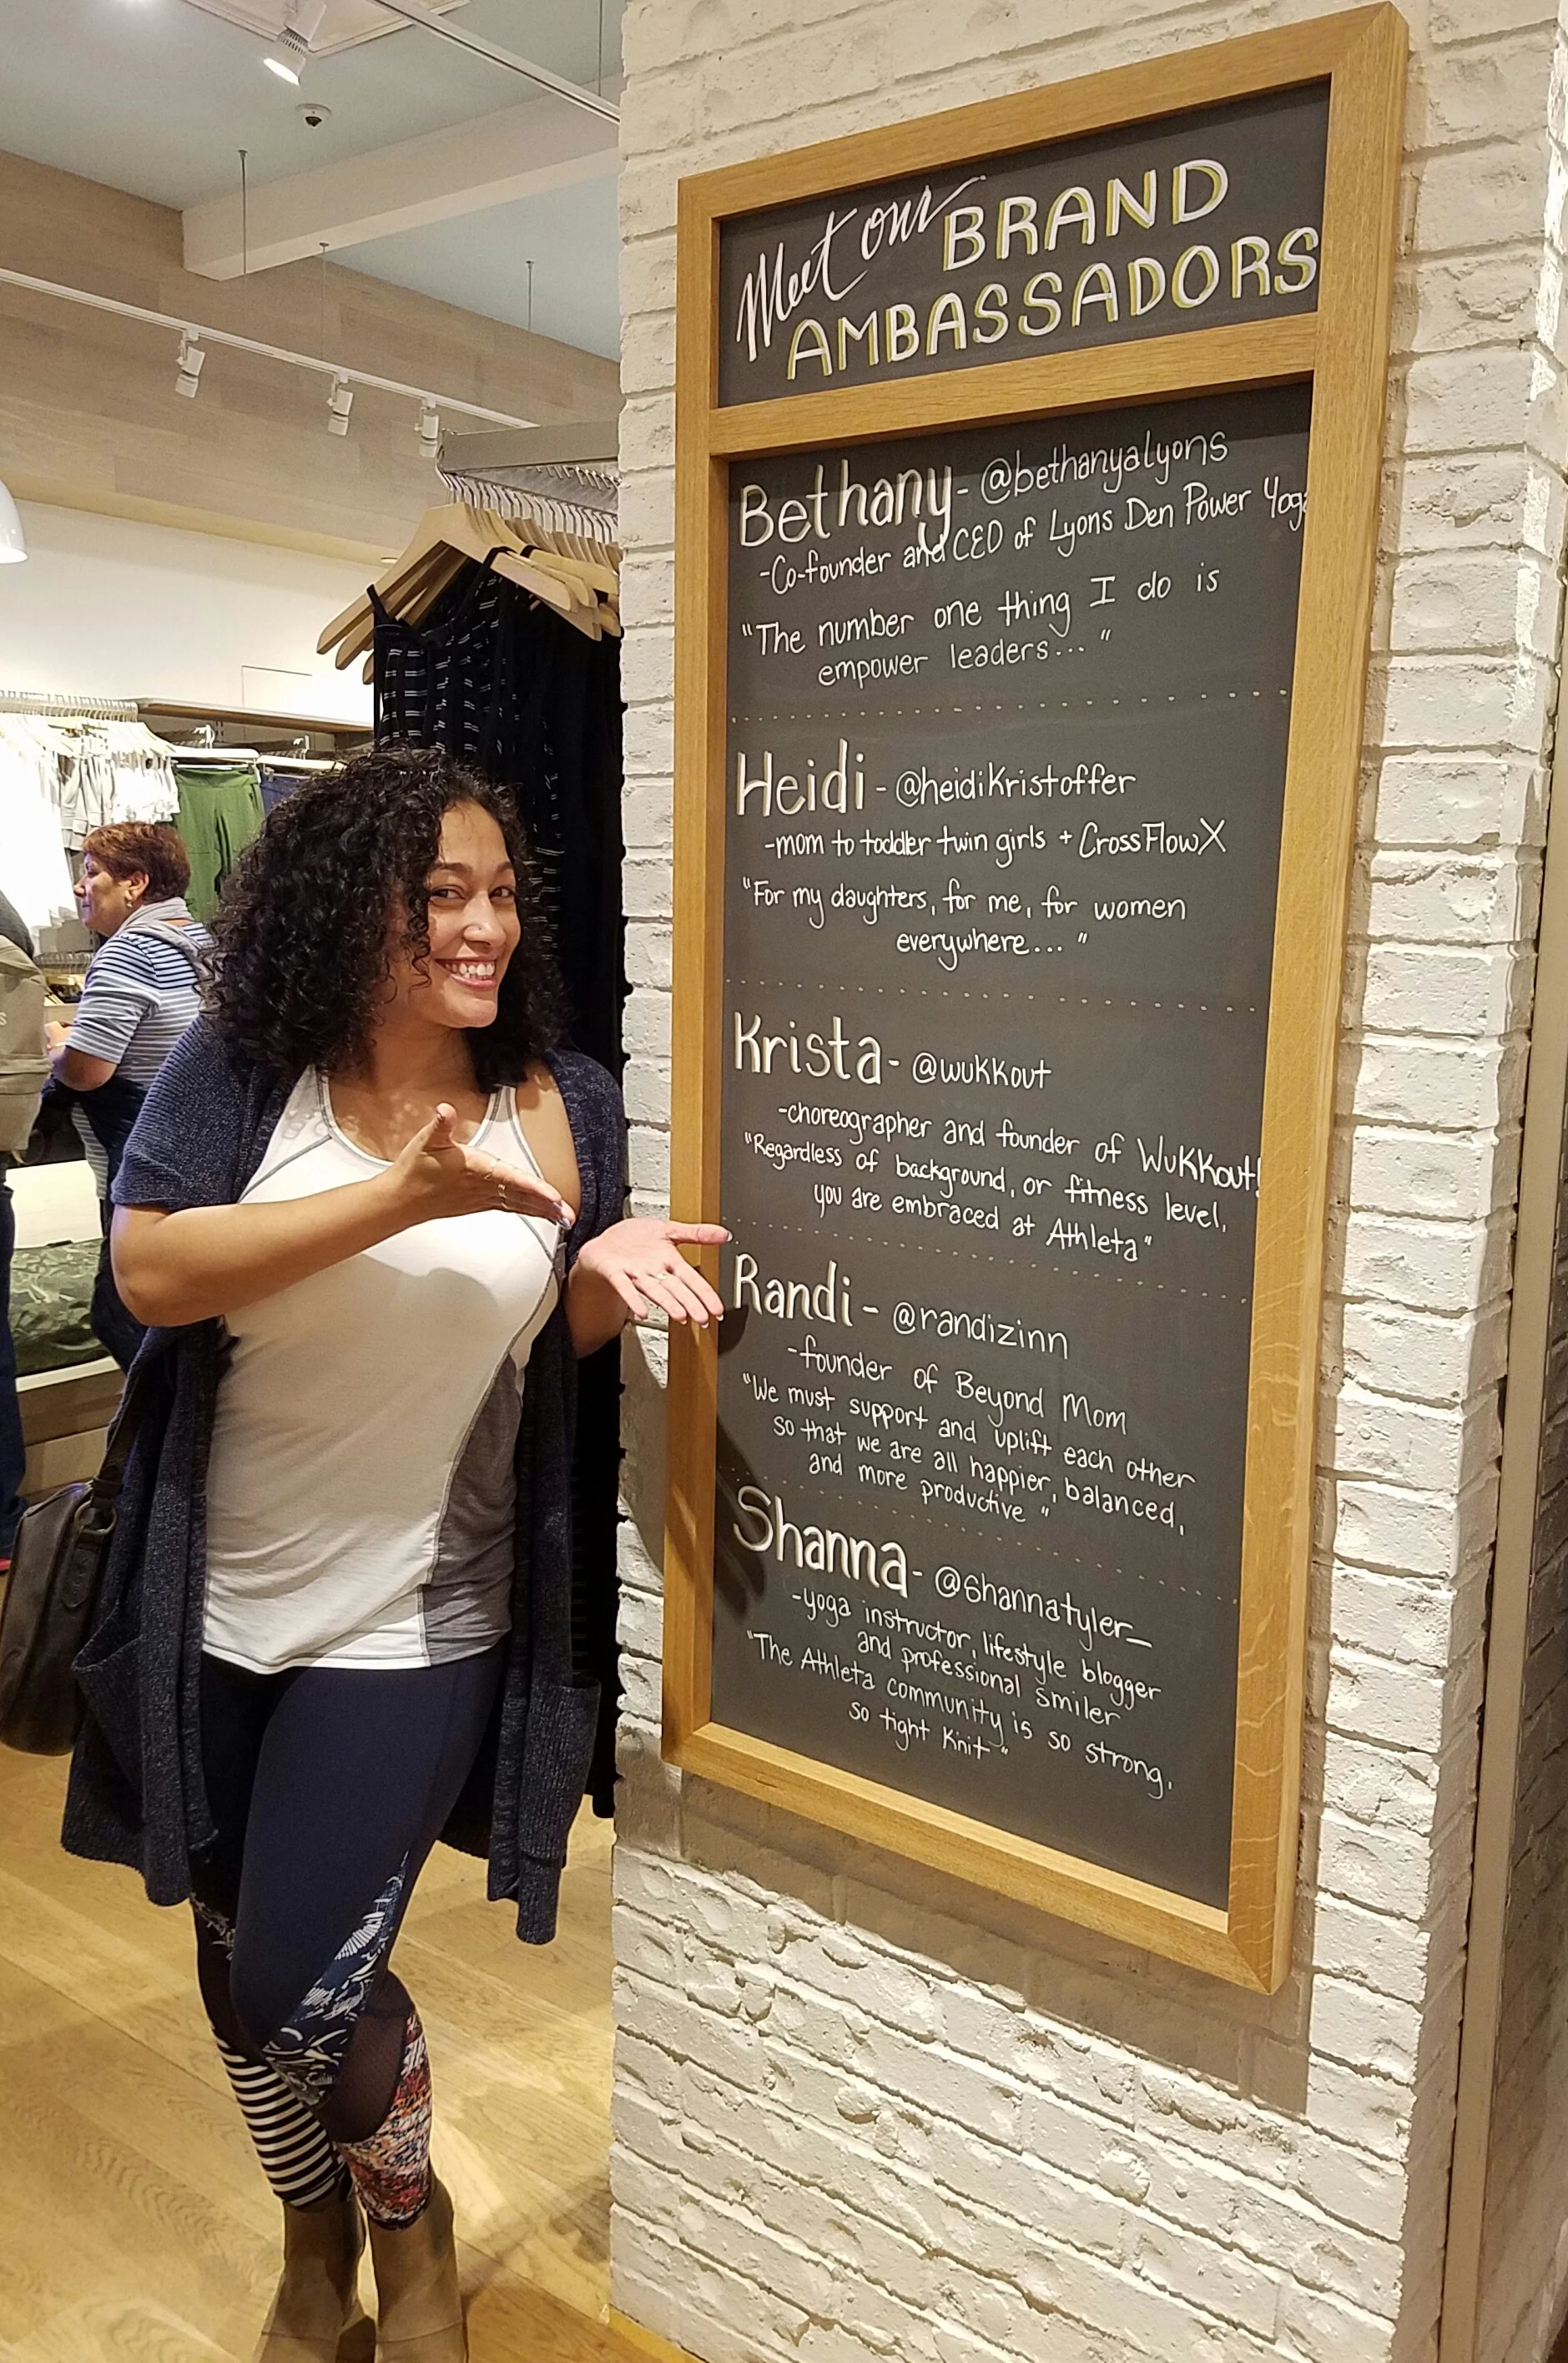 Meet our BRAND
AMBASSADORS
Bethany- @bethanyalyons
-Co-founder and CEO of Lyons Den Power Yoga
"The number one thing I do is
empower leaders..."
Heidi- @heidikristoffer
-mom to toddler twin girls + CrossFlowX
"For my daughters, for me, for women
everywhere..."
Krista- @wukkout
-choreographer and founder of WuKKout!
"Regardless of background, or fitness level,
you are embraced at Athleta"
Randi- @randizinn
-founder of Beyond Mom
"We must support and uplift each other
so that we are all happier, balanced,
and more productive"
Shanna- @shannatyler_
-yoga instructor, lifestyle blogger
and professional smiler
"The Athleta community is so strong,
so tight knit"